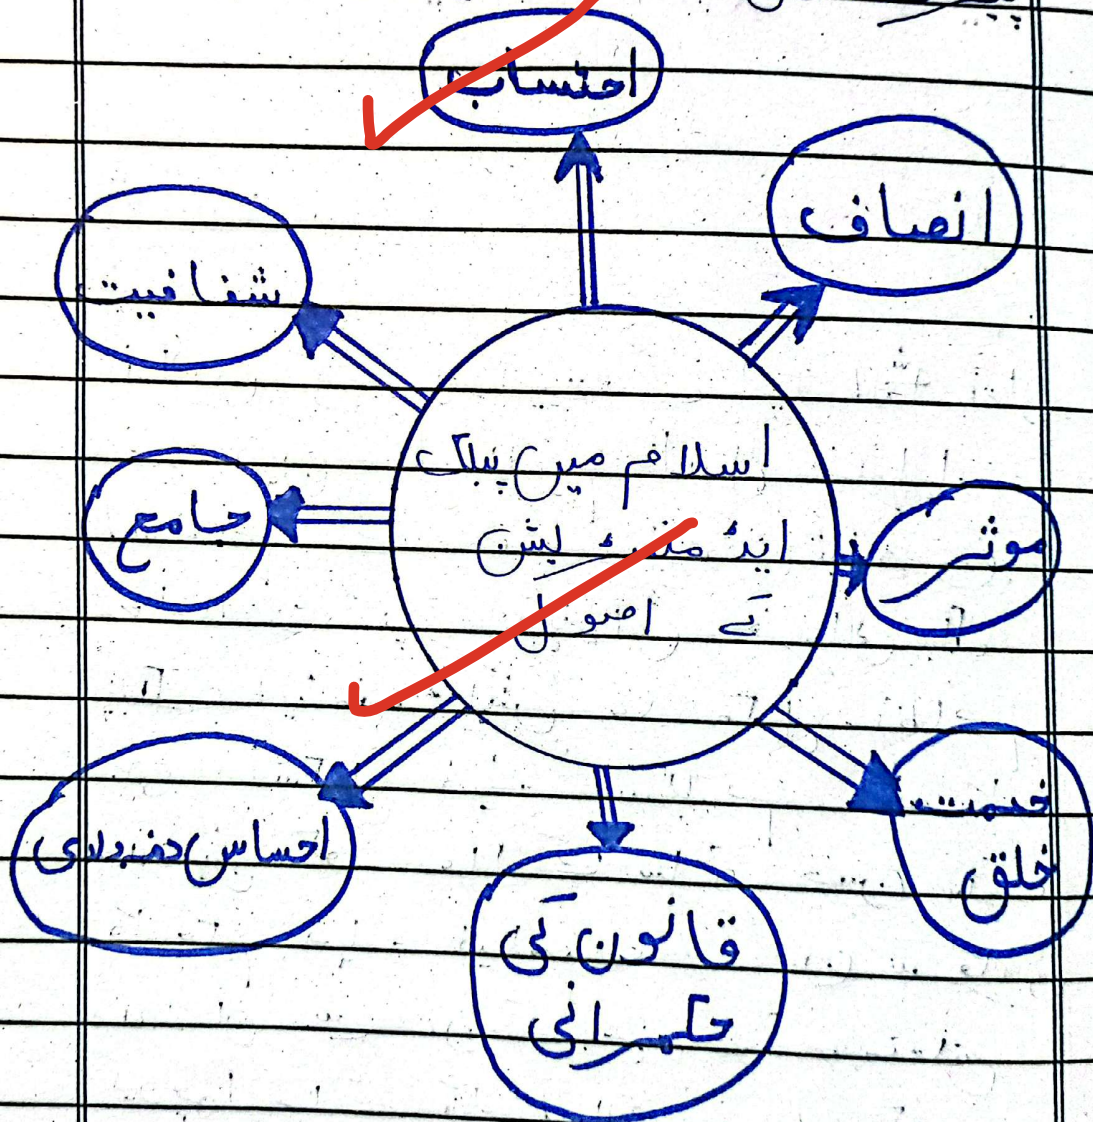 احتساب
انصاف
شفافیت
اسلام میں پبلک
ایڈمنسٹریشن
کے اصول
جامع
موثر
خدمت
خلق
احساس ذمہ داری
قانون کی
حکمرانی